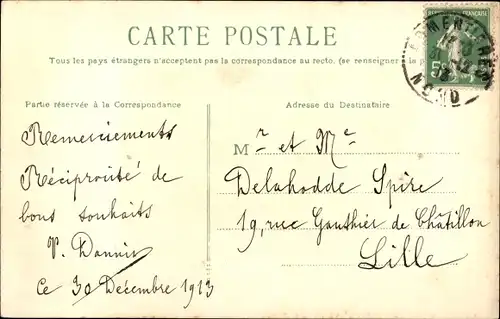 CARTE POSTALE
Tous les pays étrangers n'acceptent pas la correspondance au recto. (se renseigner
Partie réservée à la Correspondance
Adresse du Destinataire
Remerciements
Réciprocité de
bons souhaits
Ce 30 Décembre 1913
Mr et Me
Delahodde Spire
19, rue Gauthier de Châtillon
Lille
5c
NORD